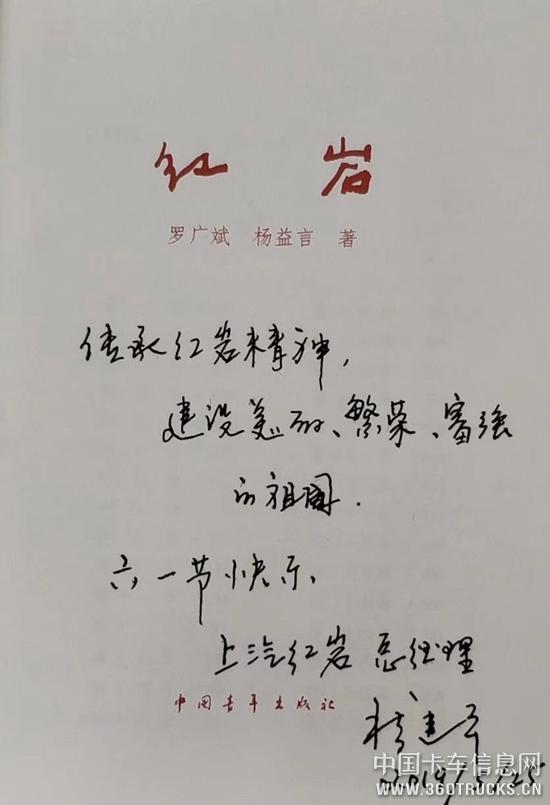 红岩
罗广斌 杨益言 著
传承红岩精神,
建设美丽、繁荣、富强
的祖国.
六一节快乐.
上汽红岩 总经理
中国青年出版社
楼建平
2019/5/25
中国卡车信息网
WWW.360TRUCKS.CN